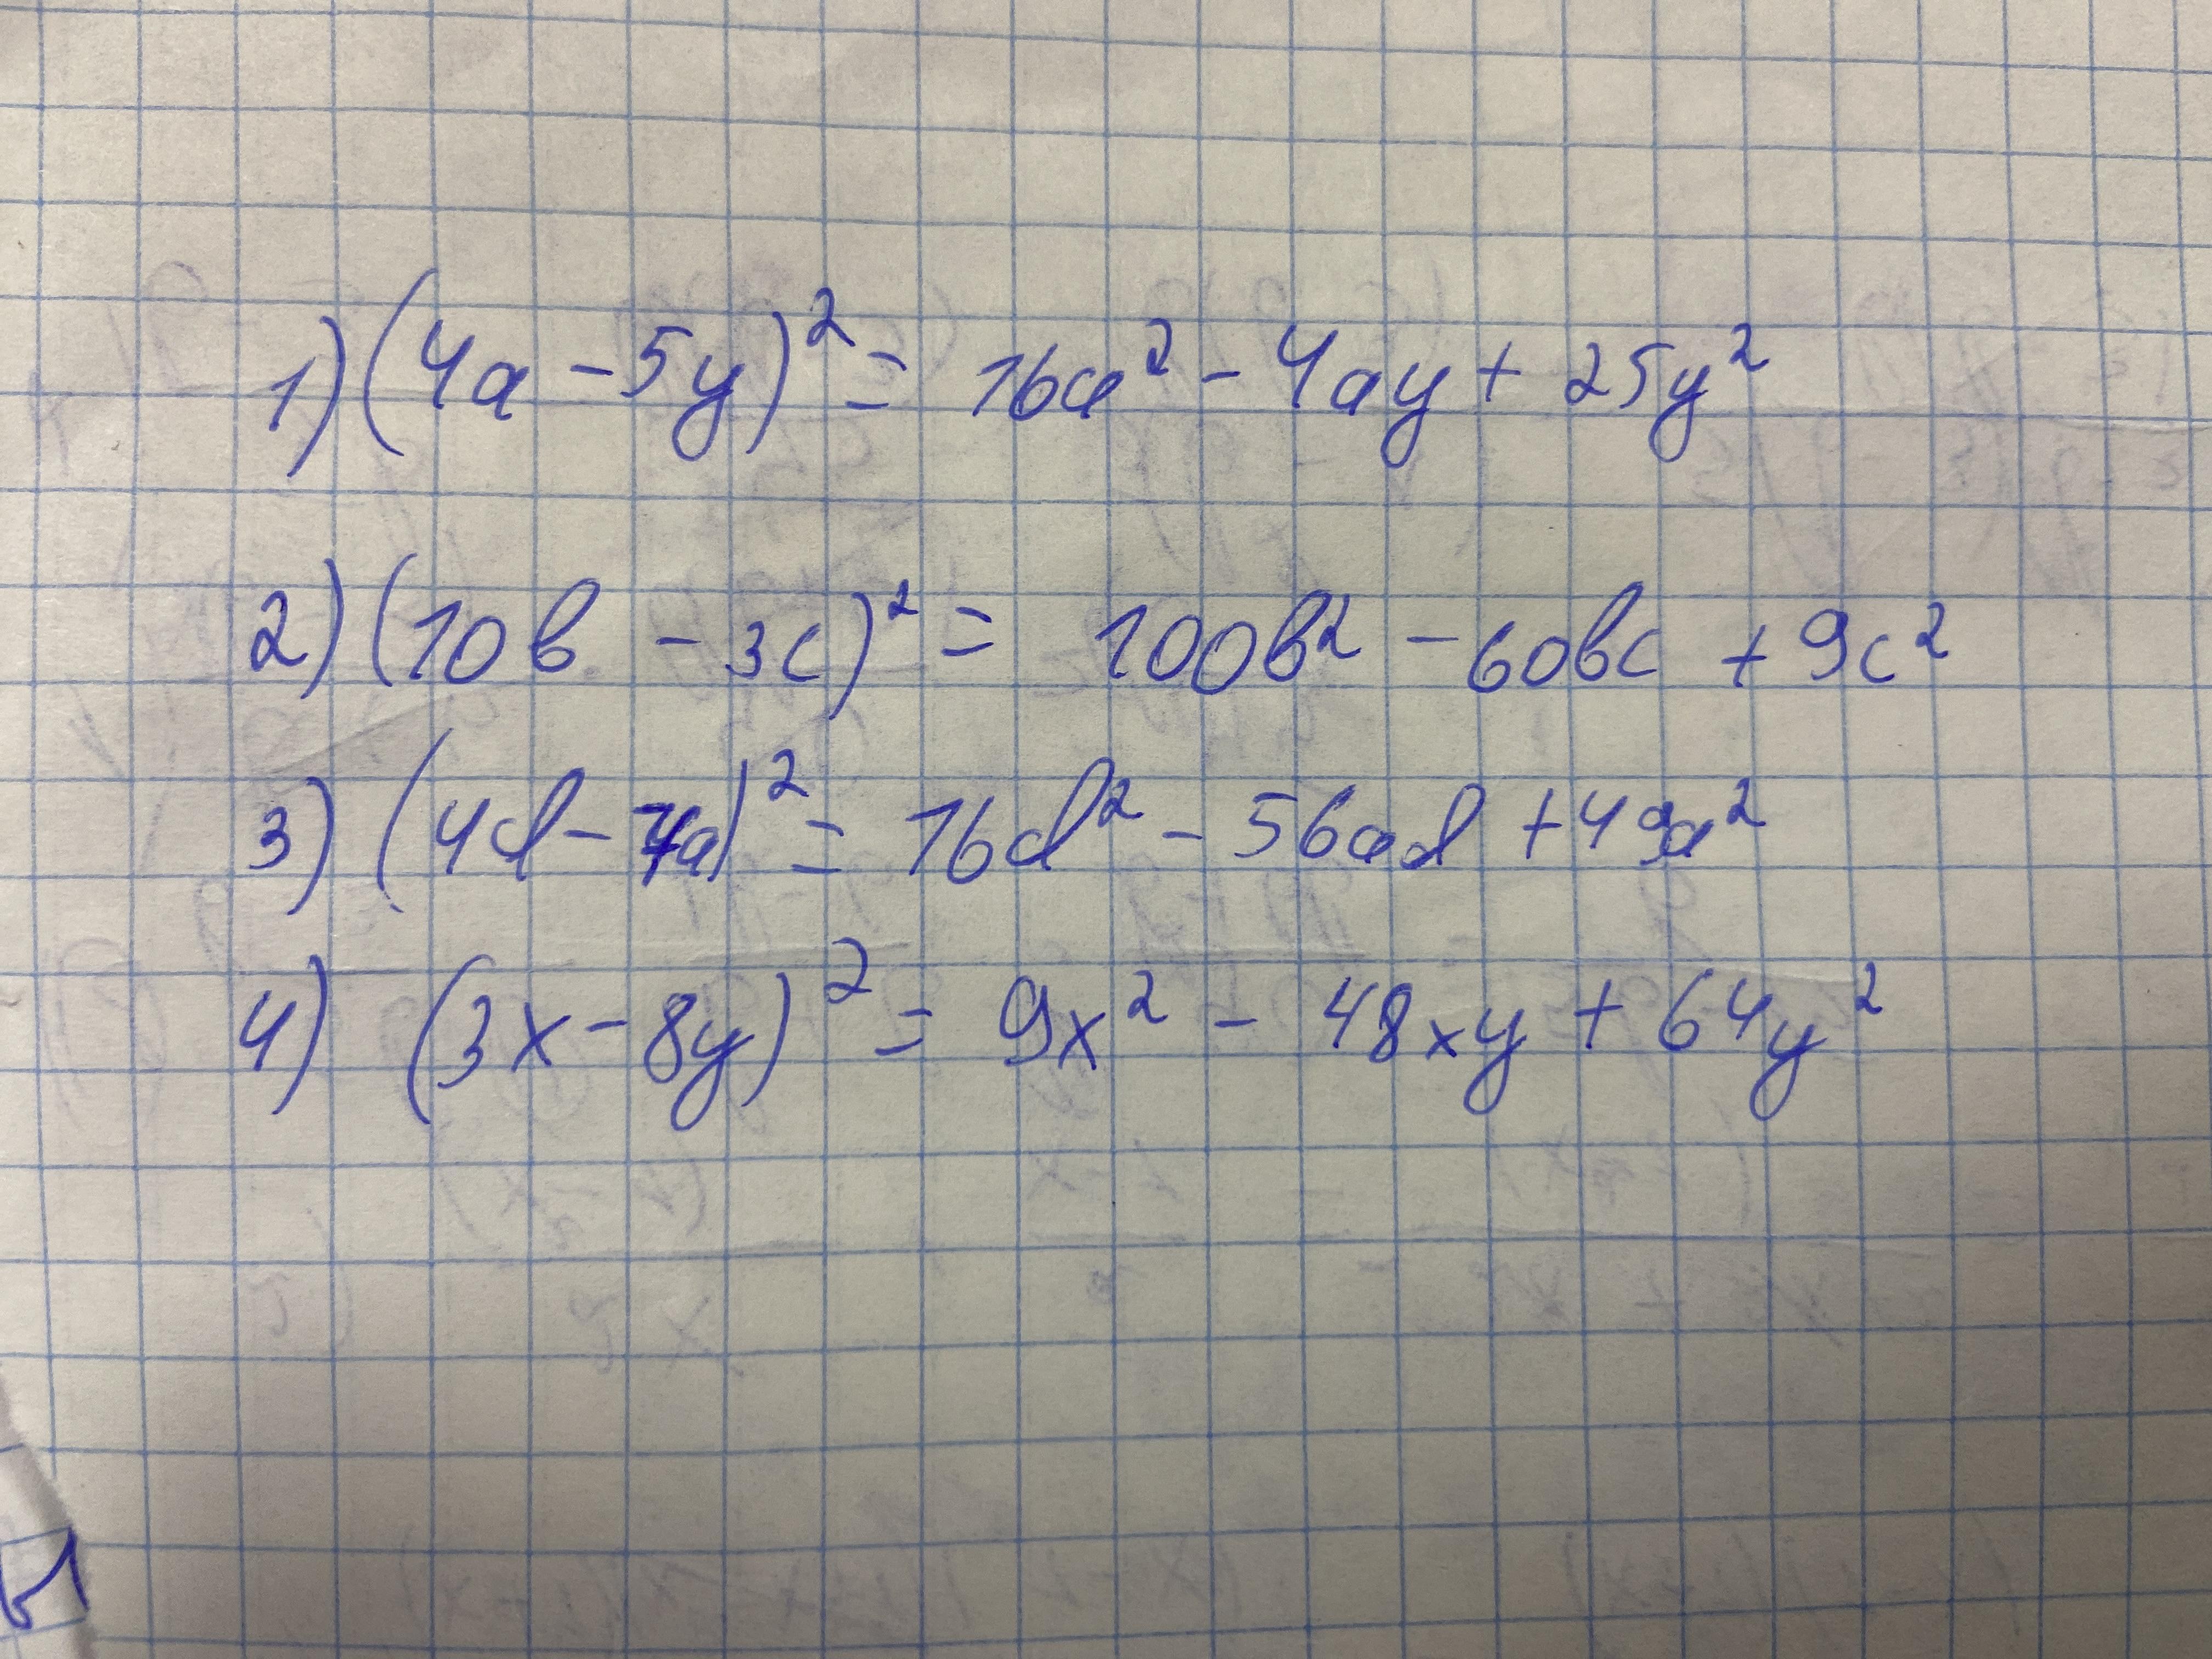 1) (4a - 5y)² = 16a² - 4ay + 25y²
2) (10b - 3c)² = 100b² - 60bc + 9c²
3) (4d - 7a)² = 16d² - 56ad + 49a²
4) (3x - 8y)² = 9x² - 48xy + 64y²